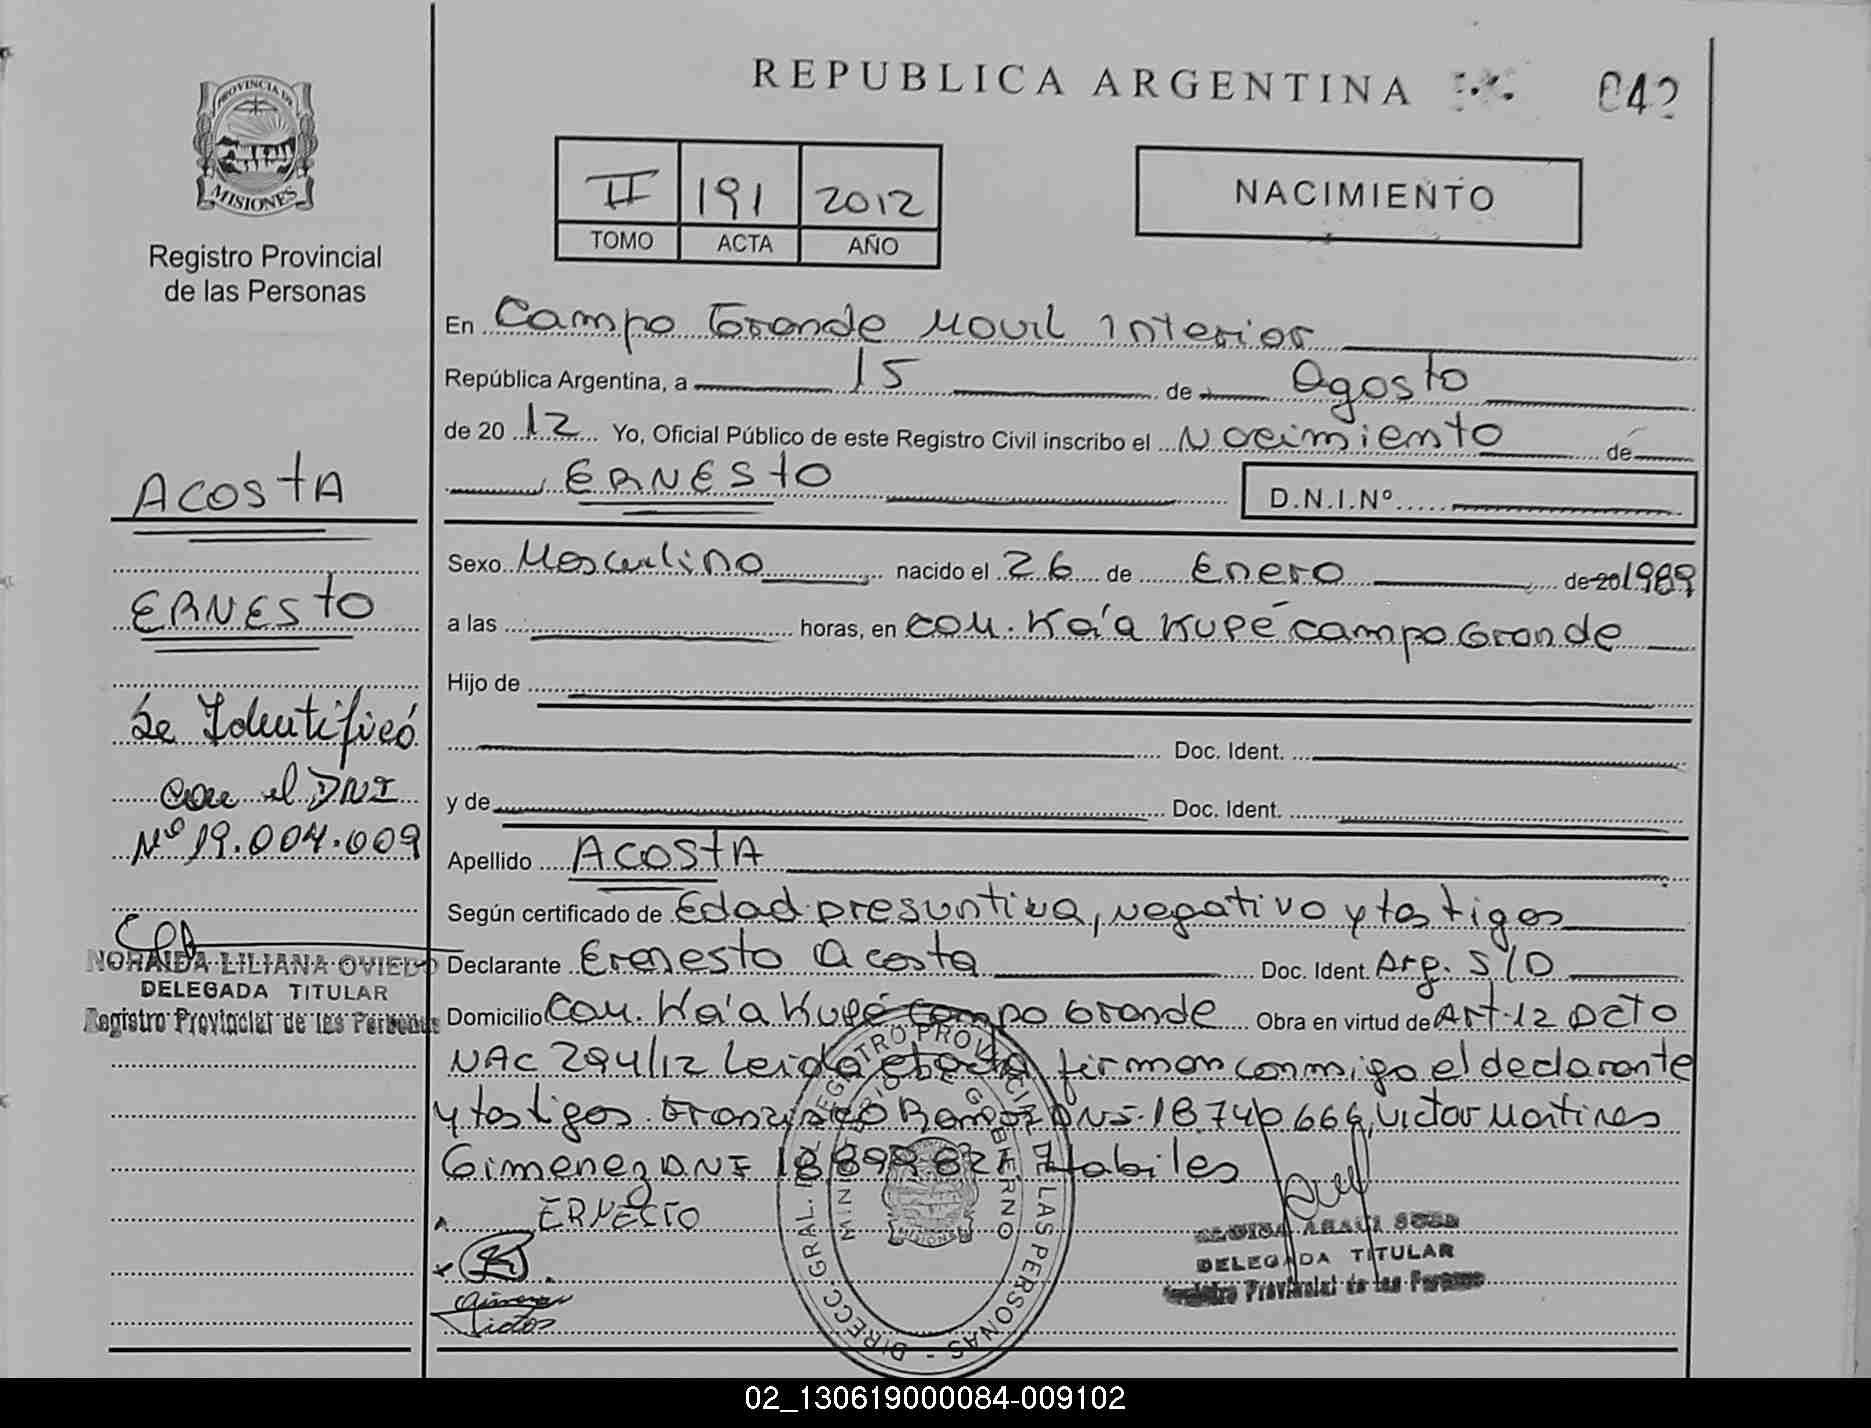 REPUBLICA ARGENTINA
042
PROVINCIA DE
MISIONES
Registro Provincial
de las Personas
II 191 2012
TOMO ACTA AÑO
NACIMIENTO
En Campo Grande Movil Interior
República Argentina, a 15 de Agosto
de 20 12 Yo, Oficial Público de este Registro Civil inscribo el Nacimiento de
ERNESTO
D.N.I.Nº
ACOSTA
ERNESTO
Se Identificó
con el DNI
Nº 19.004.009
NORAIDA LILIANA OVIEDO
DELEGADA TITULAR
Registro Provincial de las Personas
Sexo Masculino nacido el 26 de Enero de 20 1989
a las horas, en Com. Ka'a Kupé Campo Grande
Hijo de
Doc. Ident.
y de Doc. Ident.
Apellido ACOSTA
Según certificado de Edad presuntiva, negativo y testigos
Declarante Ernesto Acosta Doc. Ident. Arg. S/D
Domicilio Com. Ka'a Kupé Campo Grande Obra en virtud de Art. 12 Dcto
NAC 294/12 Leida el acta firman conmigo el declarante
y testigos Francisco Ramos DNI. 18740666, Victor Martines
Gimenez DNI Habiles
ERNESTO
Gimenez
Victor
DELEGADA TITULAR
Registro Provincial de las Personas
DIRECC. GRAL. DEL REGISTRO PROVINCIAL DE LAS PERSONAS
MINISTERIO DE GOBIERNO
MISIONES
02_130619000084-009102